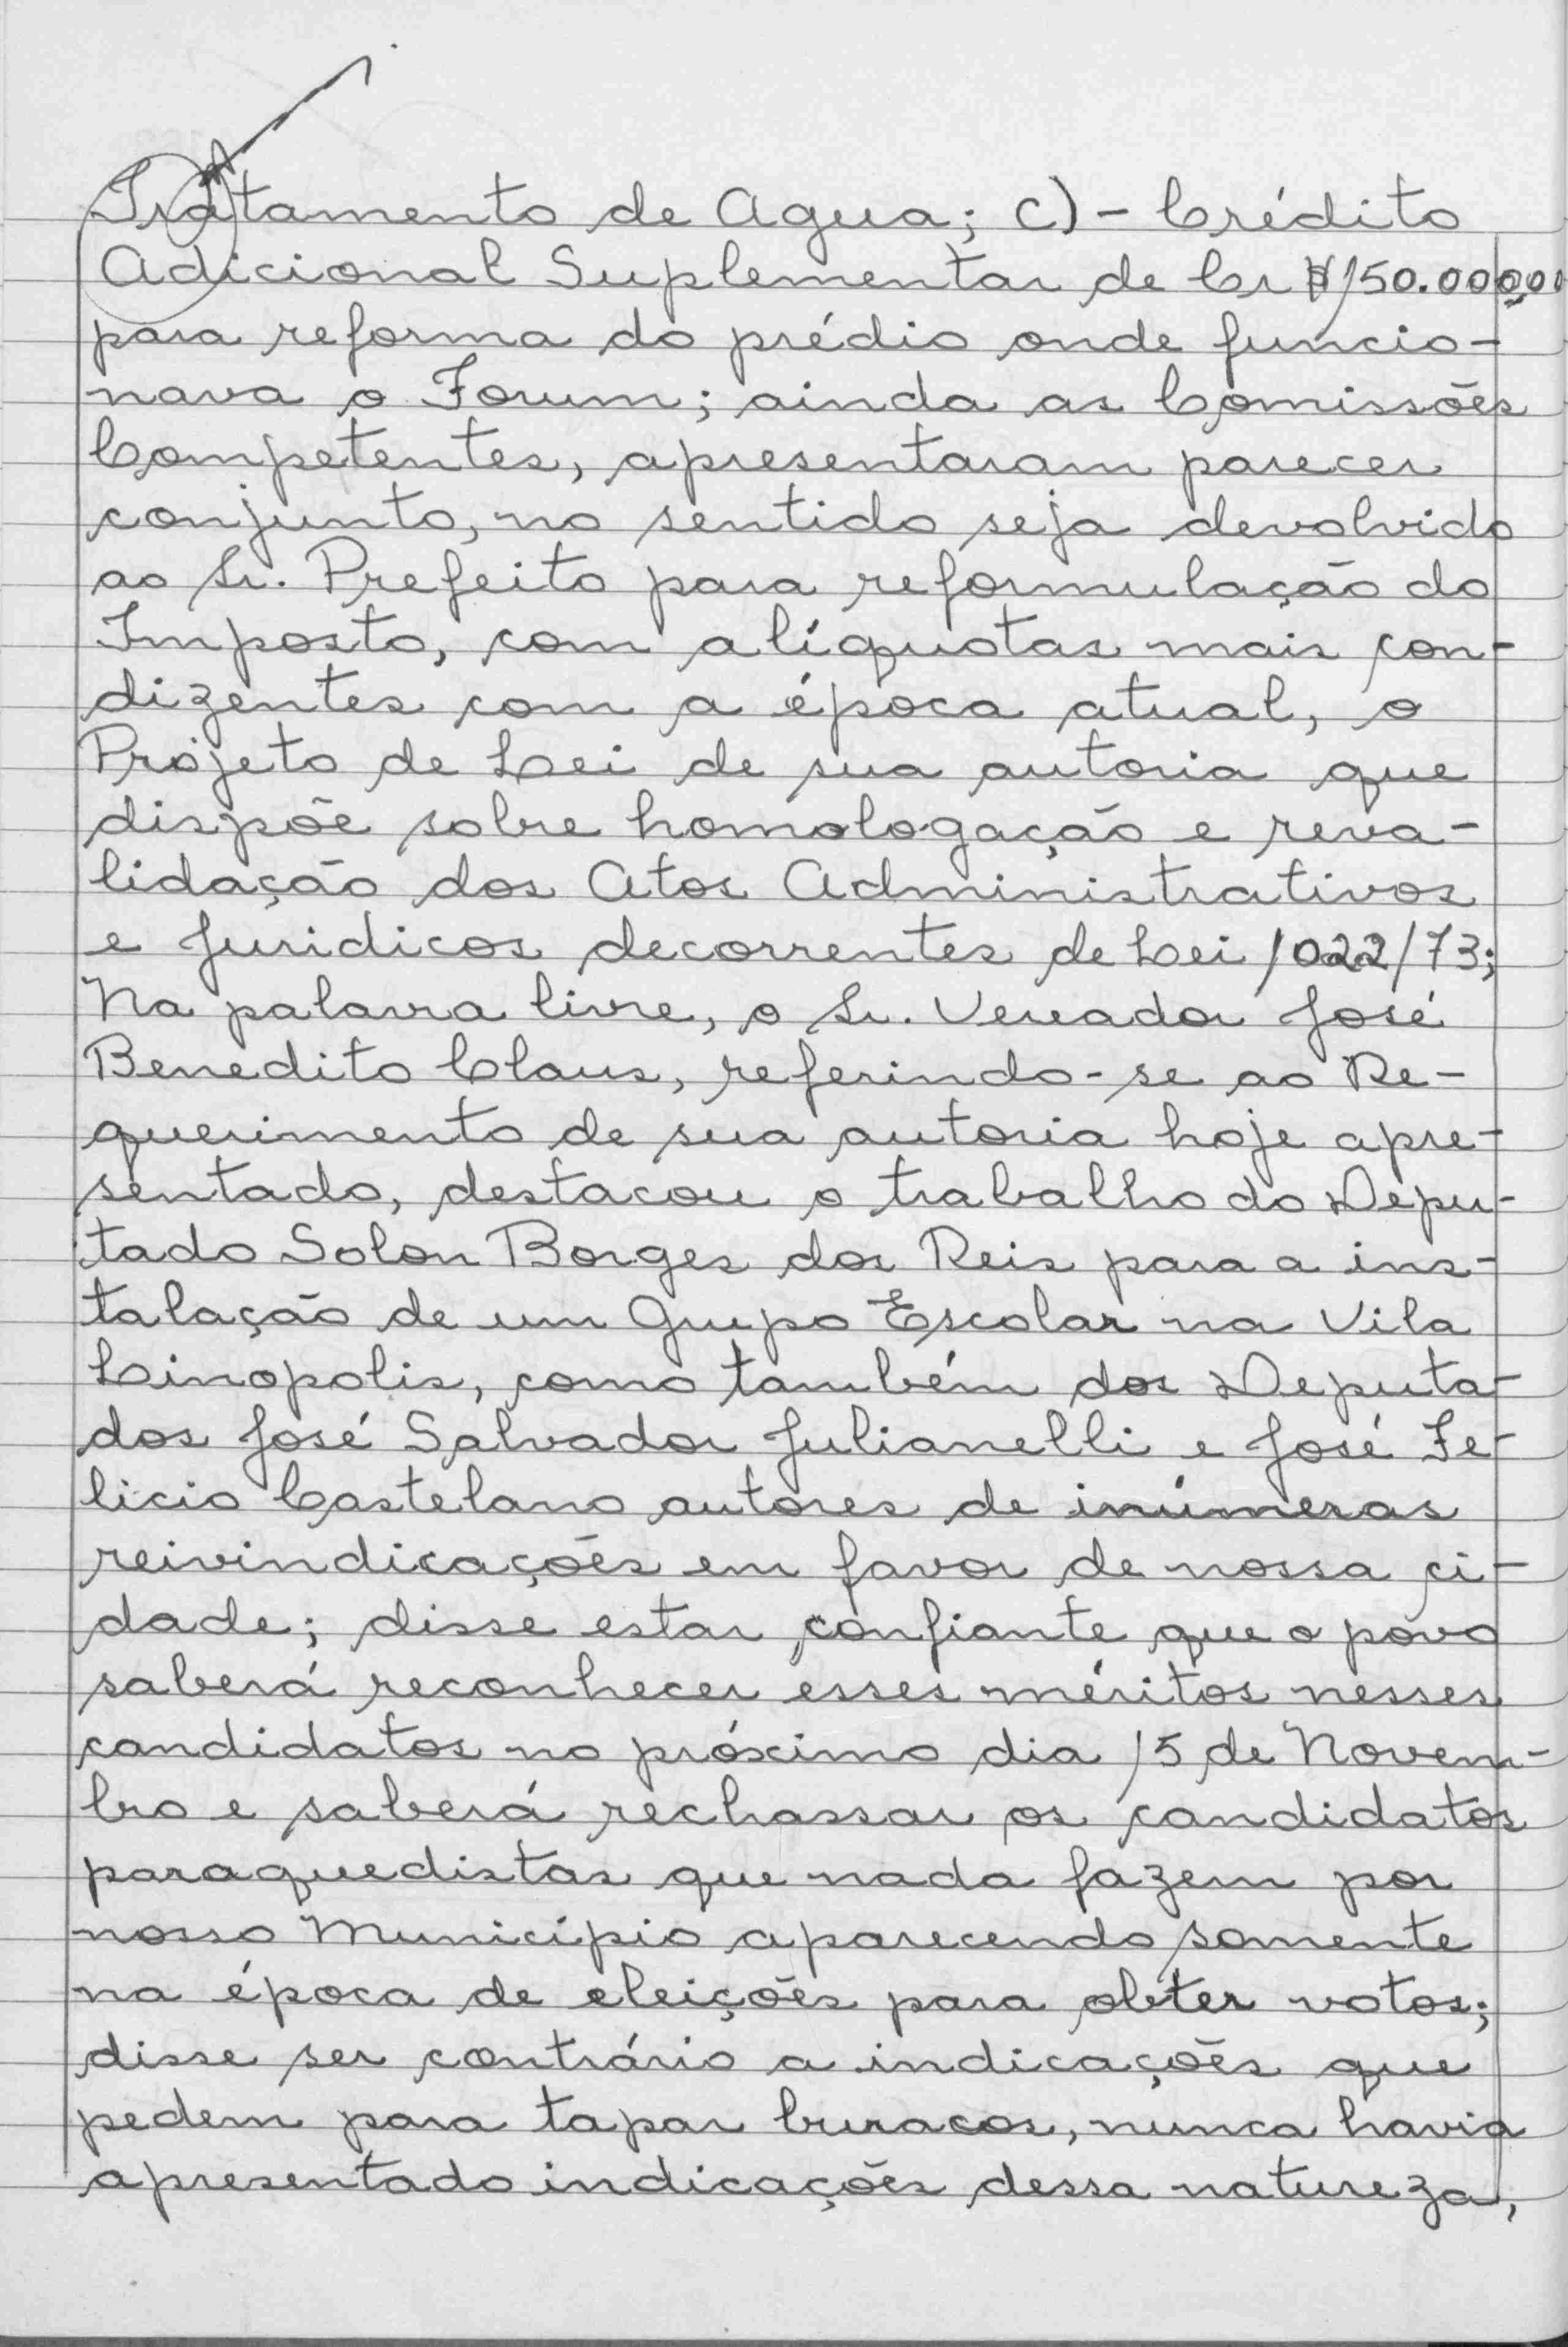 Tratamento de Agua; C) - Crédito
Adicional Suplementar de Cr$ 150.000,00
para reforma do prédio onde funcio-
nava o Forum; ainda as Comissões
Competentes, apresentaram parecer
conjunto, no sentido seja devolvido
ao Sr. Prefeito para reformulação do
Imposto, com alíquotas mais con-
dizentes com a época atual, o
Projeto de Lei de sua autoria que
dispõe sobre homologação e reva-
lidação dos Atos Administrativos
e Juridicos decorrentes de Lei 1022/73;
Na palavra livre, o Sr. Vereador José
Benedito Claus, referindo-se ao Re-
querimento de sua autoria hoje apre-
sentado, destacou o trabalho do Depu-
tado Solon Borges dos Reis para a ins-
talação de um Grupo Escolar na Vila
Linopolis, como também dos Deputa-
dos José Salvador Julianelli e José Fe-
licio Castelano autores de inúmeras
reivindicações em favor de nossa ci-
dade; disse estar confiante que o povo
saberá reconhecer esses méritos nesses
candidatos no próximo dia 15 de Novem-
bro e saberá rechassar os candidatos
paraquedistas que nada fazem por
nosso Município aparecendo somente
na época de eleições para obter votos;
disse ser contrário a indicações que
pedem para tapar buracos, nunca havia
apresentado indicações dessa natureza,